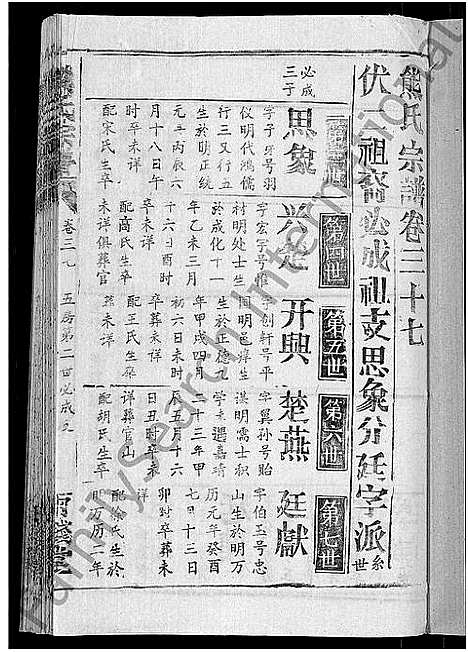 熊氏宗譜卷三十七
伏二祖裔必成祖支思象分廷字派
世系
第四世
第五世
第六世
第七世
必成
三子
思象
字子牙号羽
仪明代鸿儒
行三又行五
生於明正统
元年丙辰六
月十八日午
時卒未详
配宋氏生卒
未详俱葬官
字宏字号惟
村明处士生
於成化十一
年乙未三月
十六日酉时
卒未详
配高氏生卒
开興
字创轩号平
国明邑庠生
於正德九
年甲戌四月
初六日未时
卒葬未详
配王氏生卒
葬未详
楚燕
字翼孙号贻
谋明儒士积
学未遇嘉靖
二十三年甲
辰五月十六
日丑时卒
详葬官山
配胡氏生卒
详
廷獻
字伯玉号忠
山生於明万
历元年癸酉
七月十三日
卯时卒葬未
配徐氏生於
明历历二年
卷三七
五房第二世必成支
FamilySearch International